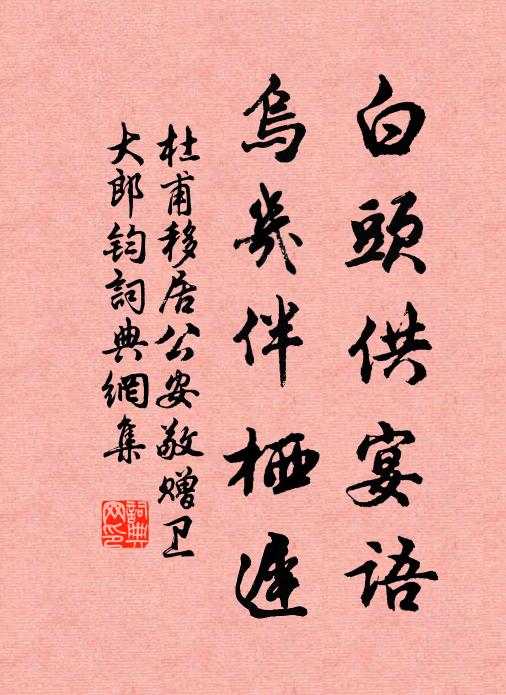 白頭供宴語
烏幾伴栖遲
杜甫移居公安敬贈卫
大郎鈞詞典網集
詞典
网印